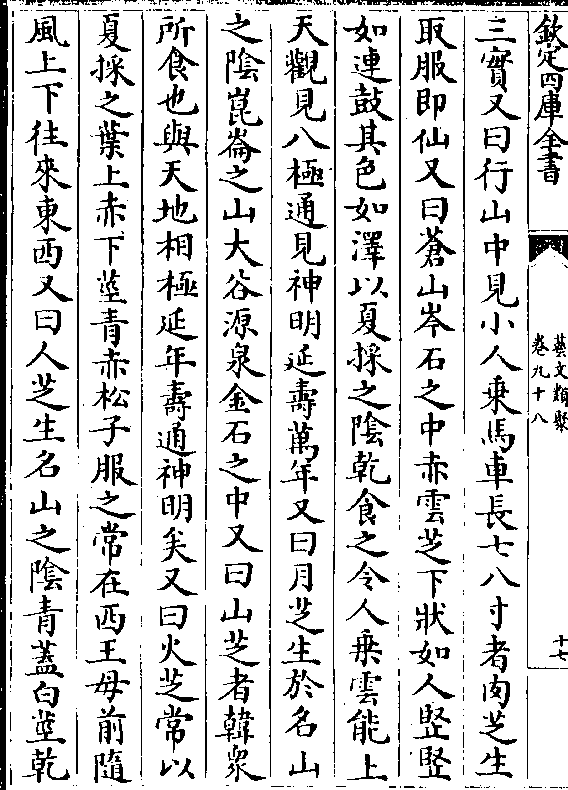 欽定四庫全書
藝文類聚
卷九十八
十七
三實又曰行山中見小人乗馬車長七八寸者肉芝生
取服即仙又曰蒼山岑石之中赤雲芝下狀如人竪竪
如連鼓其色如澤以夏採之陰乾食之令人乗雲能上
天觀見八極通見神明延壽萬年又曰月芝生於名山
之陰崑崙之山大谷源泉金石之中又曰山芝者韓衆
所食也與天地相極延年壽通神明矣又曰火芝常以
夏採之葉上赤下莖青赤松子服之常在西王母前隨
風上下往來東西又曰人芝生名山之陰青蓋白莖乾